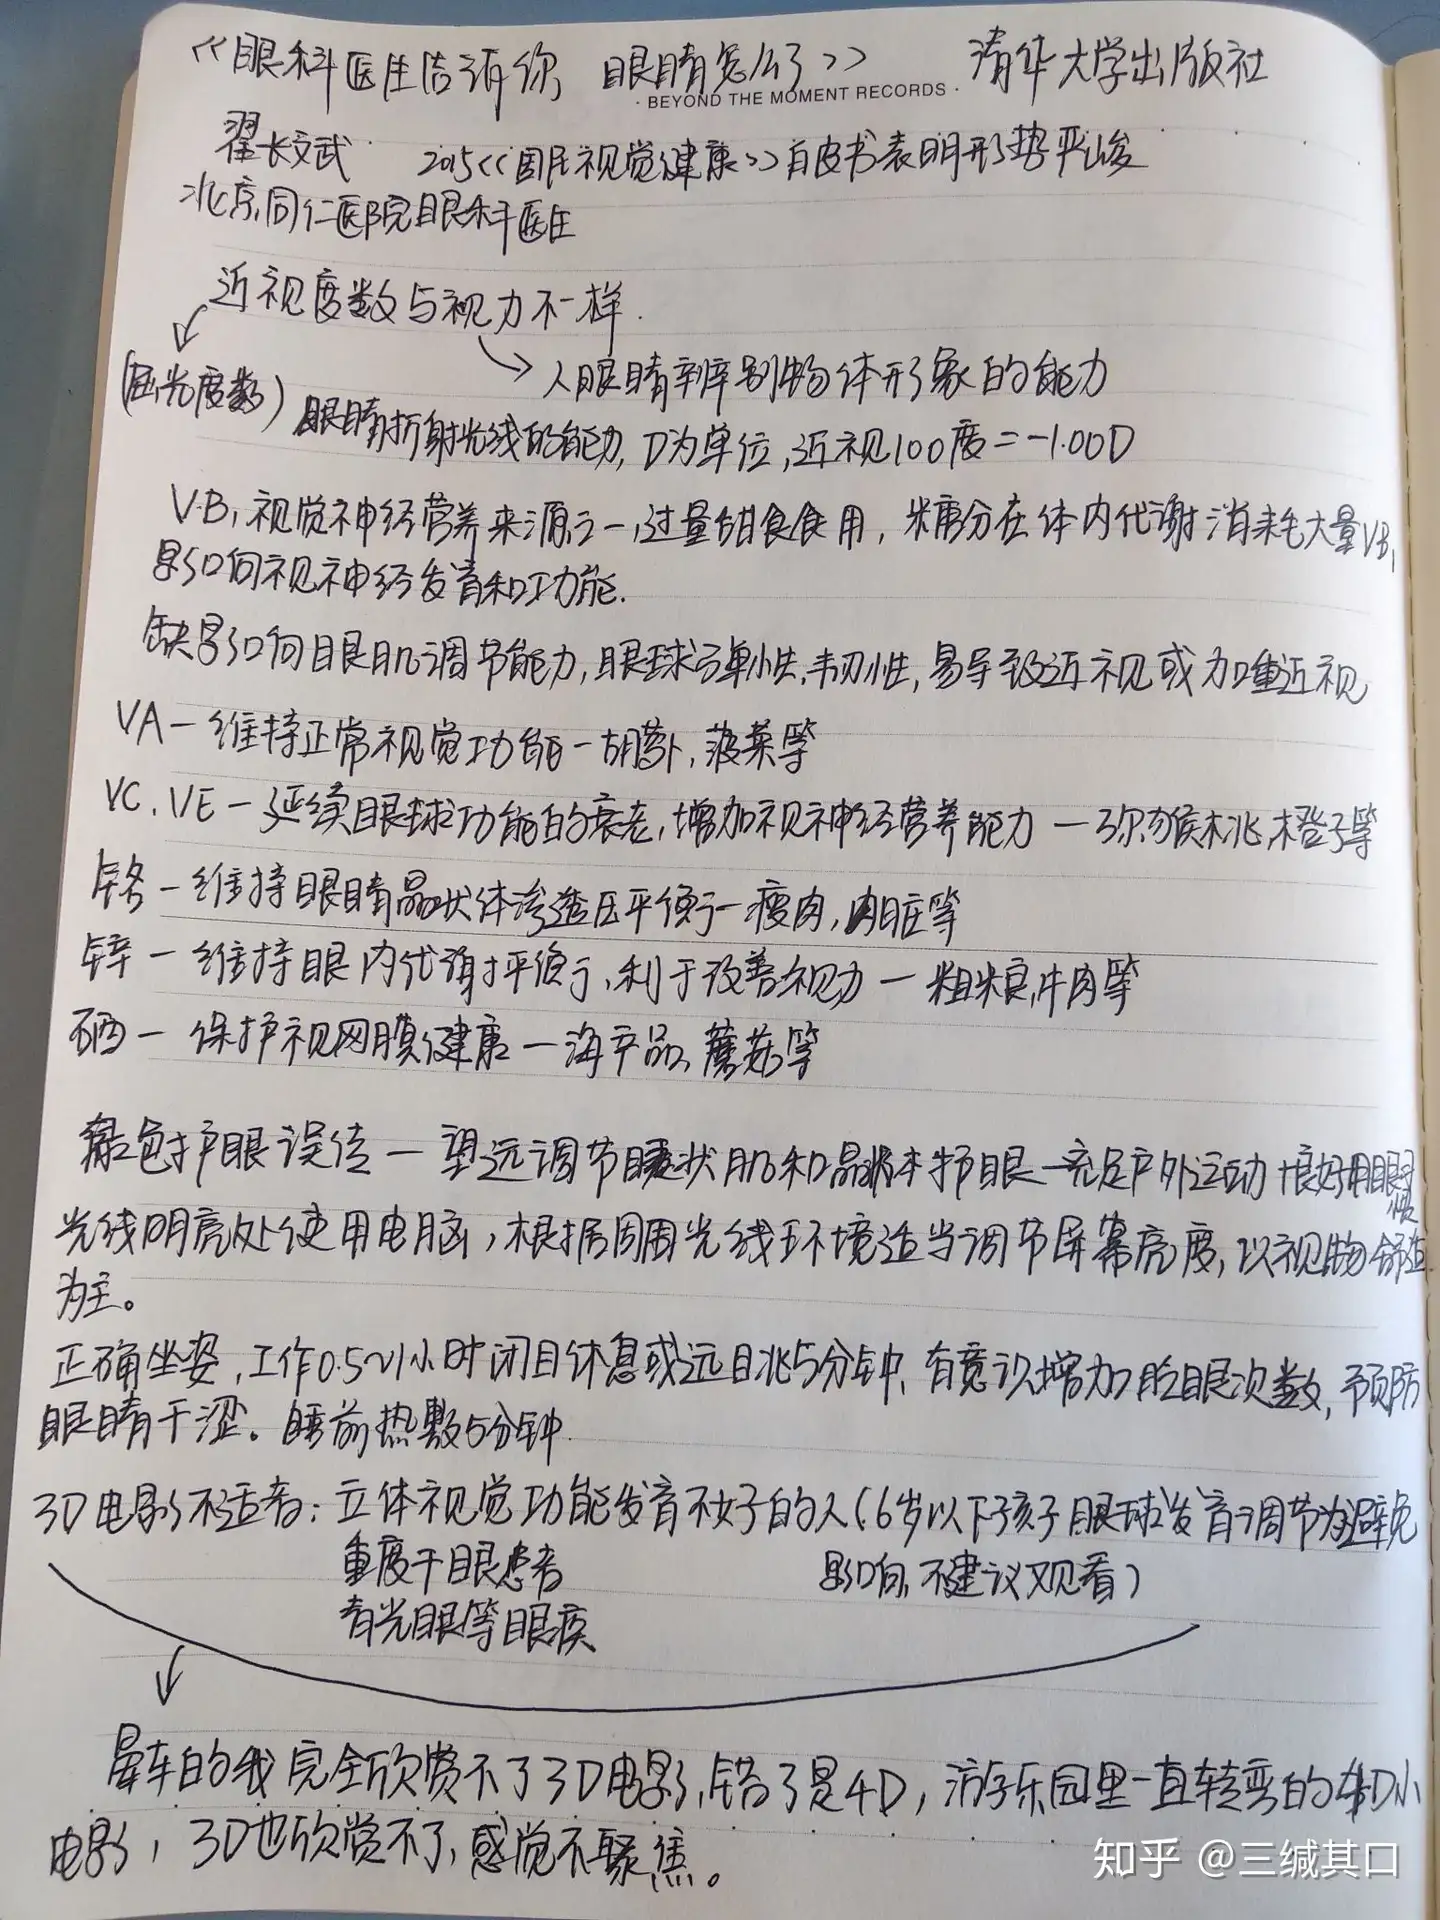 《眼科医生告诉你 眼睛怎么了》 清华大学出版社
· BEYOND THE MOMENT RECORDS ·
翟长斌 2015《国民视觉健康》白皮书表明形势严峻
北京同仁医院眼科医生
近视度数与视力不一样.
人眼睛辨别物体形象的能力
(屈光度数) 眼睛折射光线的能力, D为单位, 近视100度=-1.00D
VB₁视觉神经营养来源之一,过量甜食食用, 糖分在体内代谢消耗大量VB₁
影响视神经发育和功能.
缺铬影响眼肌调节能力, 眼球弹性,韧性,易导致近视或加重近视
VA—维持正常视觉功能—胡萝卜,菠菜等
VC、VE—延续眼球功能的衰老,增加视神经营养能力—弥猴桃,橙子等
铬—维持眼睛晶状体渗透压平衡—瘦肉,内脏等
锌—维持眼内代谢平衡,利于改善视力—粗粮,牛肉等
硒—保护视网膜健康—海产品,蘑菇等
绿色护眼误传—望远调节睫状肌和晶状体护眼—充足户外运动+良好用眼习惯
光线明亮处使用电脑,根据周围光线环境适当调节屏幕亮度,以视物舒适
为主。
正确坐姿,工作0.5~1小时闭目休息或远目兆5分钟,有意识增加眨眼次数,预防
眼睛干涩。睡前热敷5分钟.
3D电影不适者:立体视觉功能发育不好的人(6岁以下孩子眼球发育调节为避免
重度干眼患者 影响,不建议观看)
青光眼等眼疾
晕车的我完全欣赏不了3D电影,错了是4D,游乐园里一直转弯的4D小
电影,3D也欣赏不了,感觉不聚焦。
知乎 @三缄其口